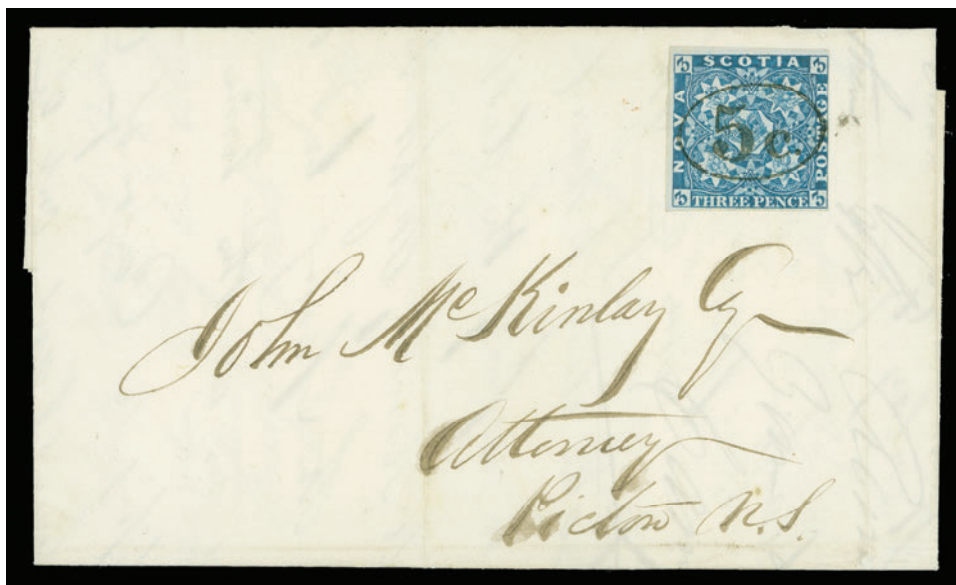 SCOTIA
NOVA
POSTAGE
5 c.
THREE PENCE
John McKinlay Esq
Attorney
Pictou N.S.